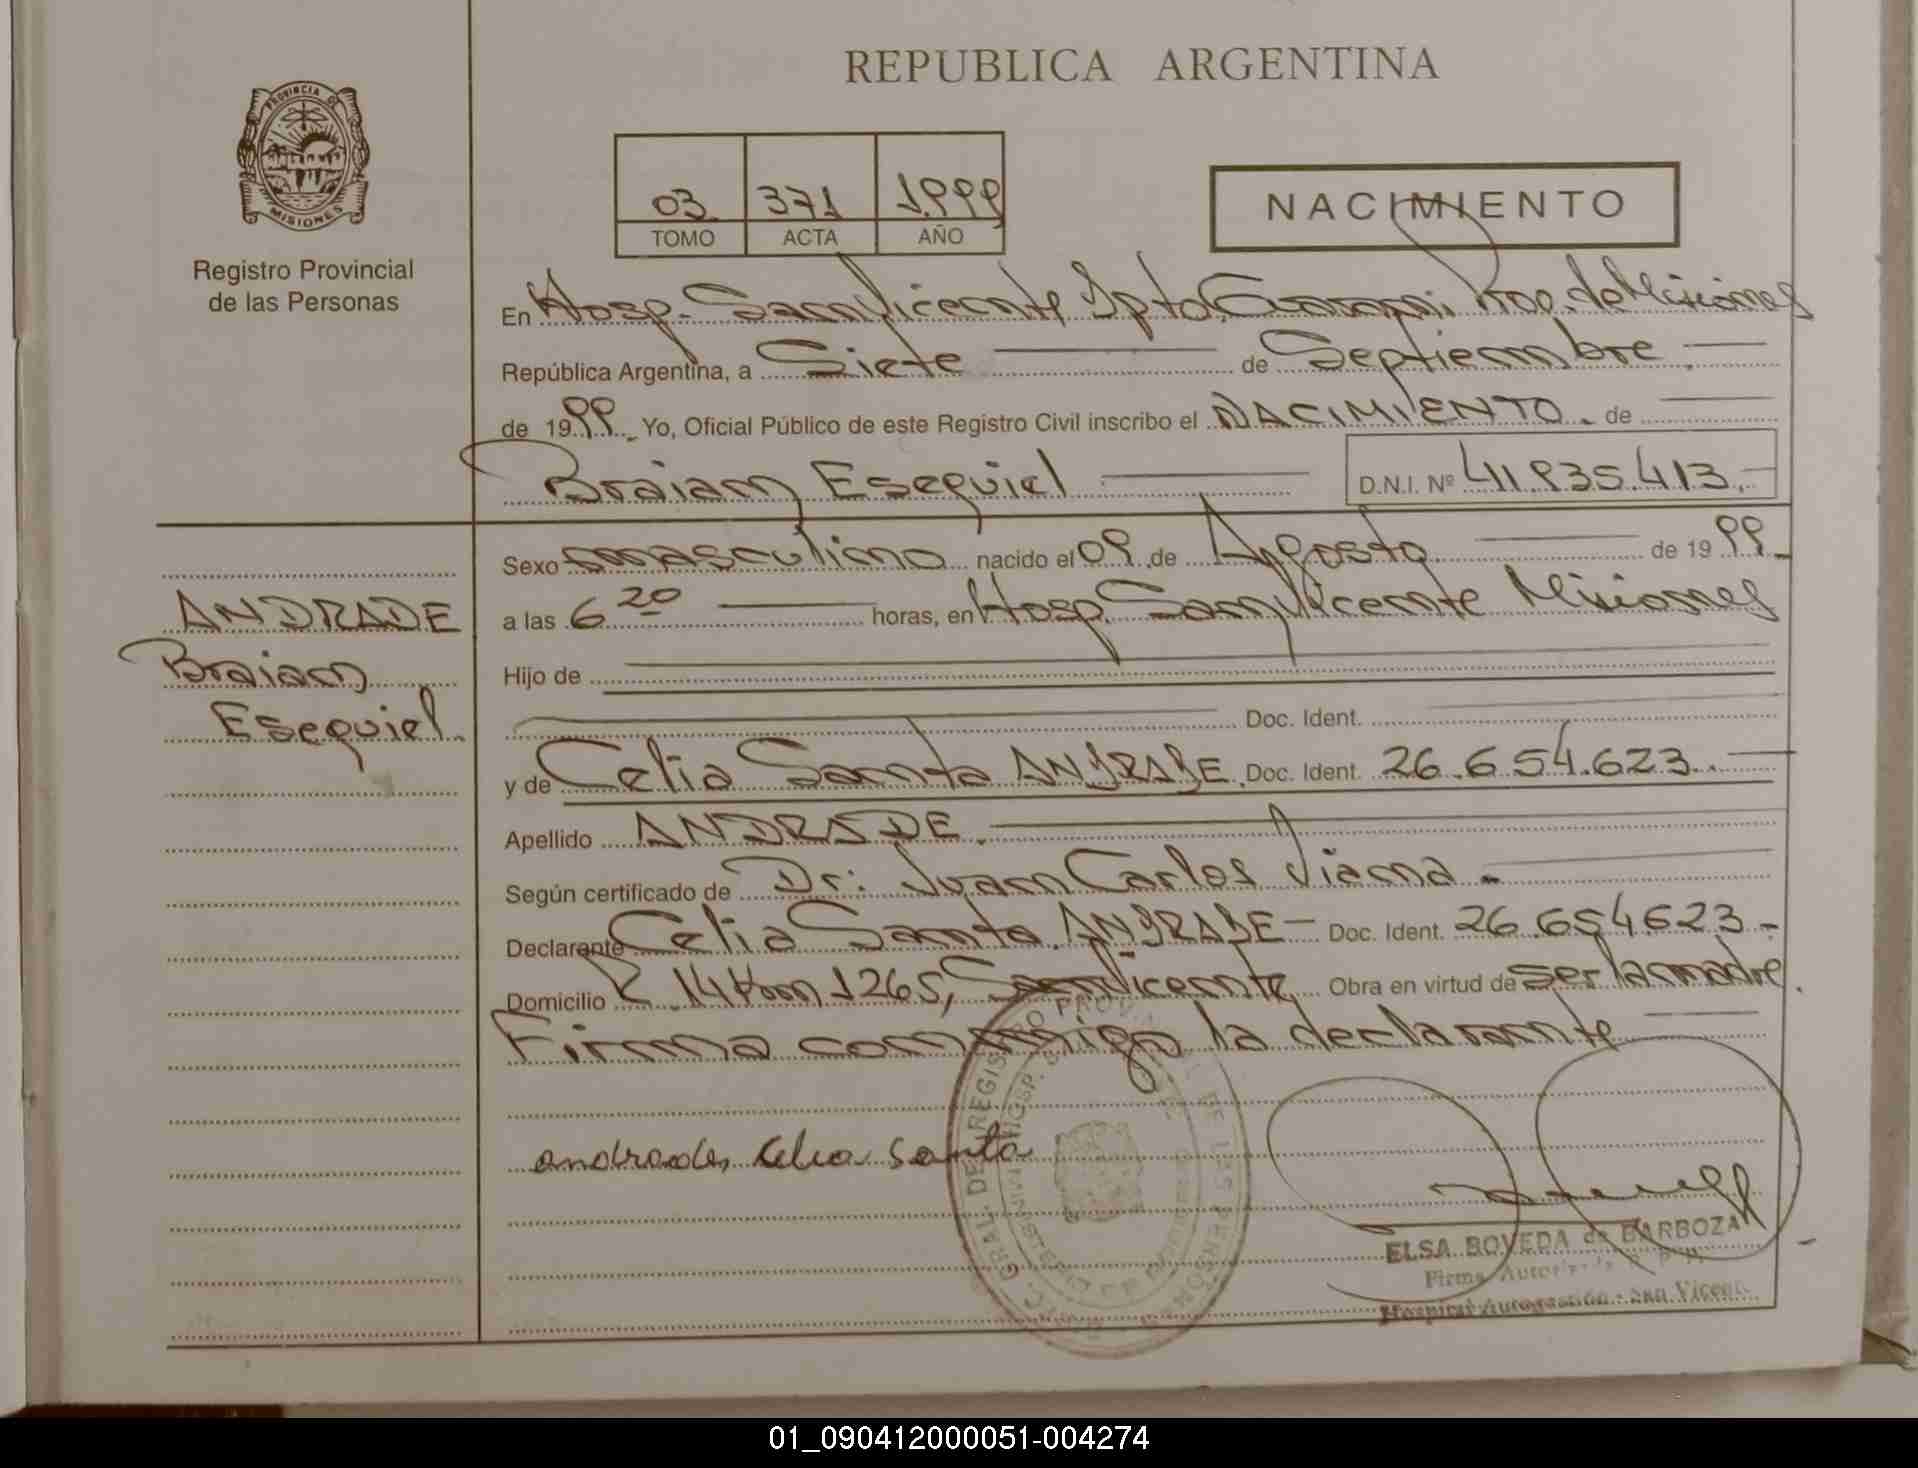 REPUBLICA ARGENTINA
PROVINCIA DE
MISIONES
Registro Provincial
de las Personas
03 371 1.999
TOMO ACTA AÑO
NACIMIENTO
En Hosp. San Vicente Dpto. Guarani Prov. de Misiones
República Argentina, a Siete de Septiembre
de 1999. Yo, Oficial Público de este Registro Civil inscribo el NACIMIENTO. de
Braian Esequiel D.N.I. Nº 41.935.413.-
Sexo masculino nacido el 09 de Agosto de 1999.
a las 6 20 horas, en Hosp. San Vicente Misiones
Hijo de
Doc. Ident.
y de Celia Santa ANDRADE. Doc. Ident. 26.654.623.
Apellido ANDRADE.
Según certificado de Dr: Juan Carlos Viana.-
Declarante Celia Santa ANDRADE- Doc. Ident. 26.654.623-
Domicilio R. 14 Km 1265, San Vicente Obra en virtud de ser la madre.
Firma conmigo la declarante
ANDRADE
Braian
Esequiel.
andrade, Celia Santa
ELSA BOVEDA de BARBOZA
Firma Autorizada
Hospital Autogestión - San Vicente
01_090412000051-004274